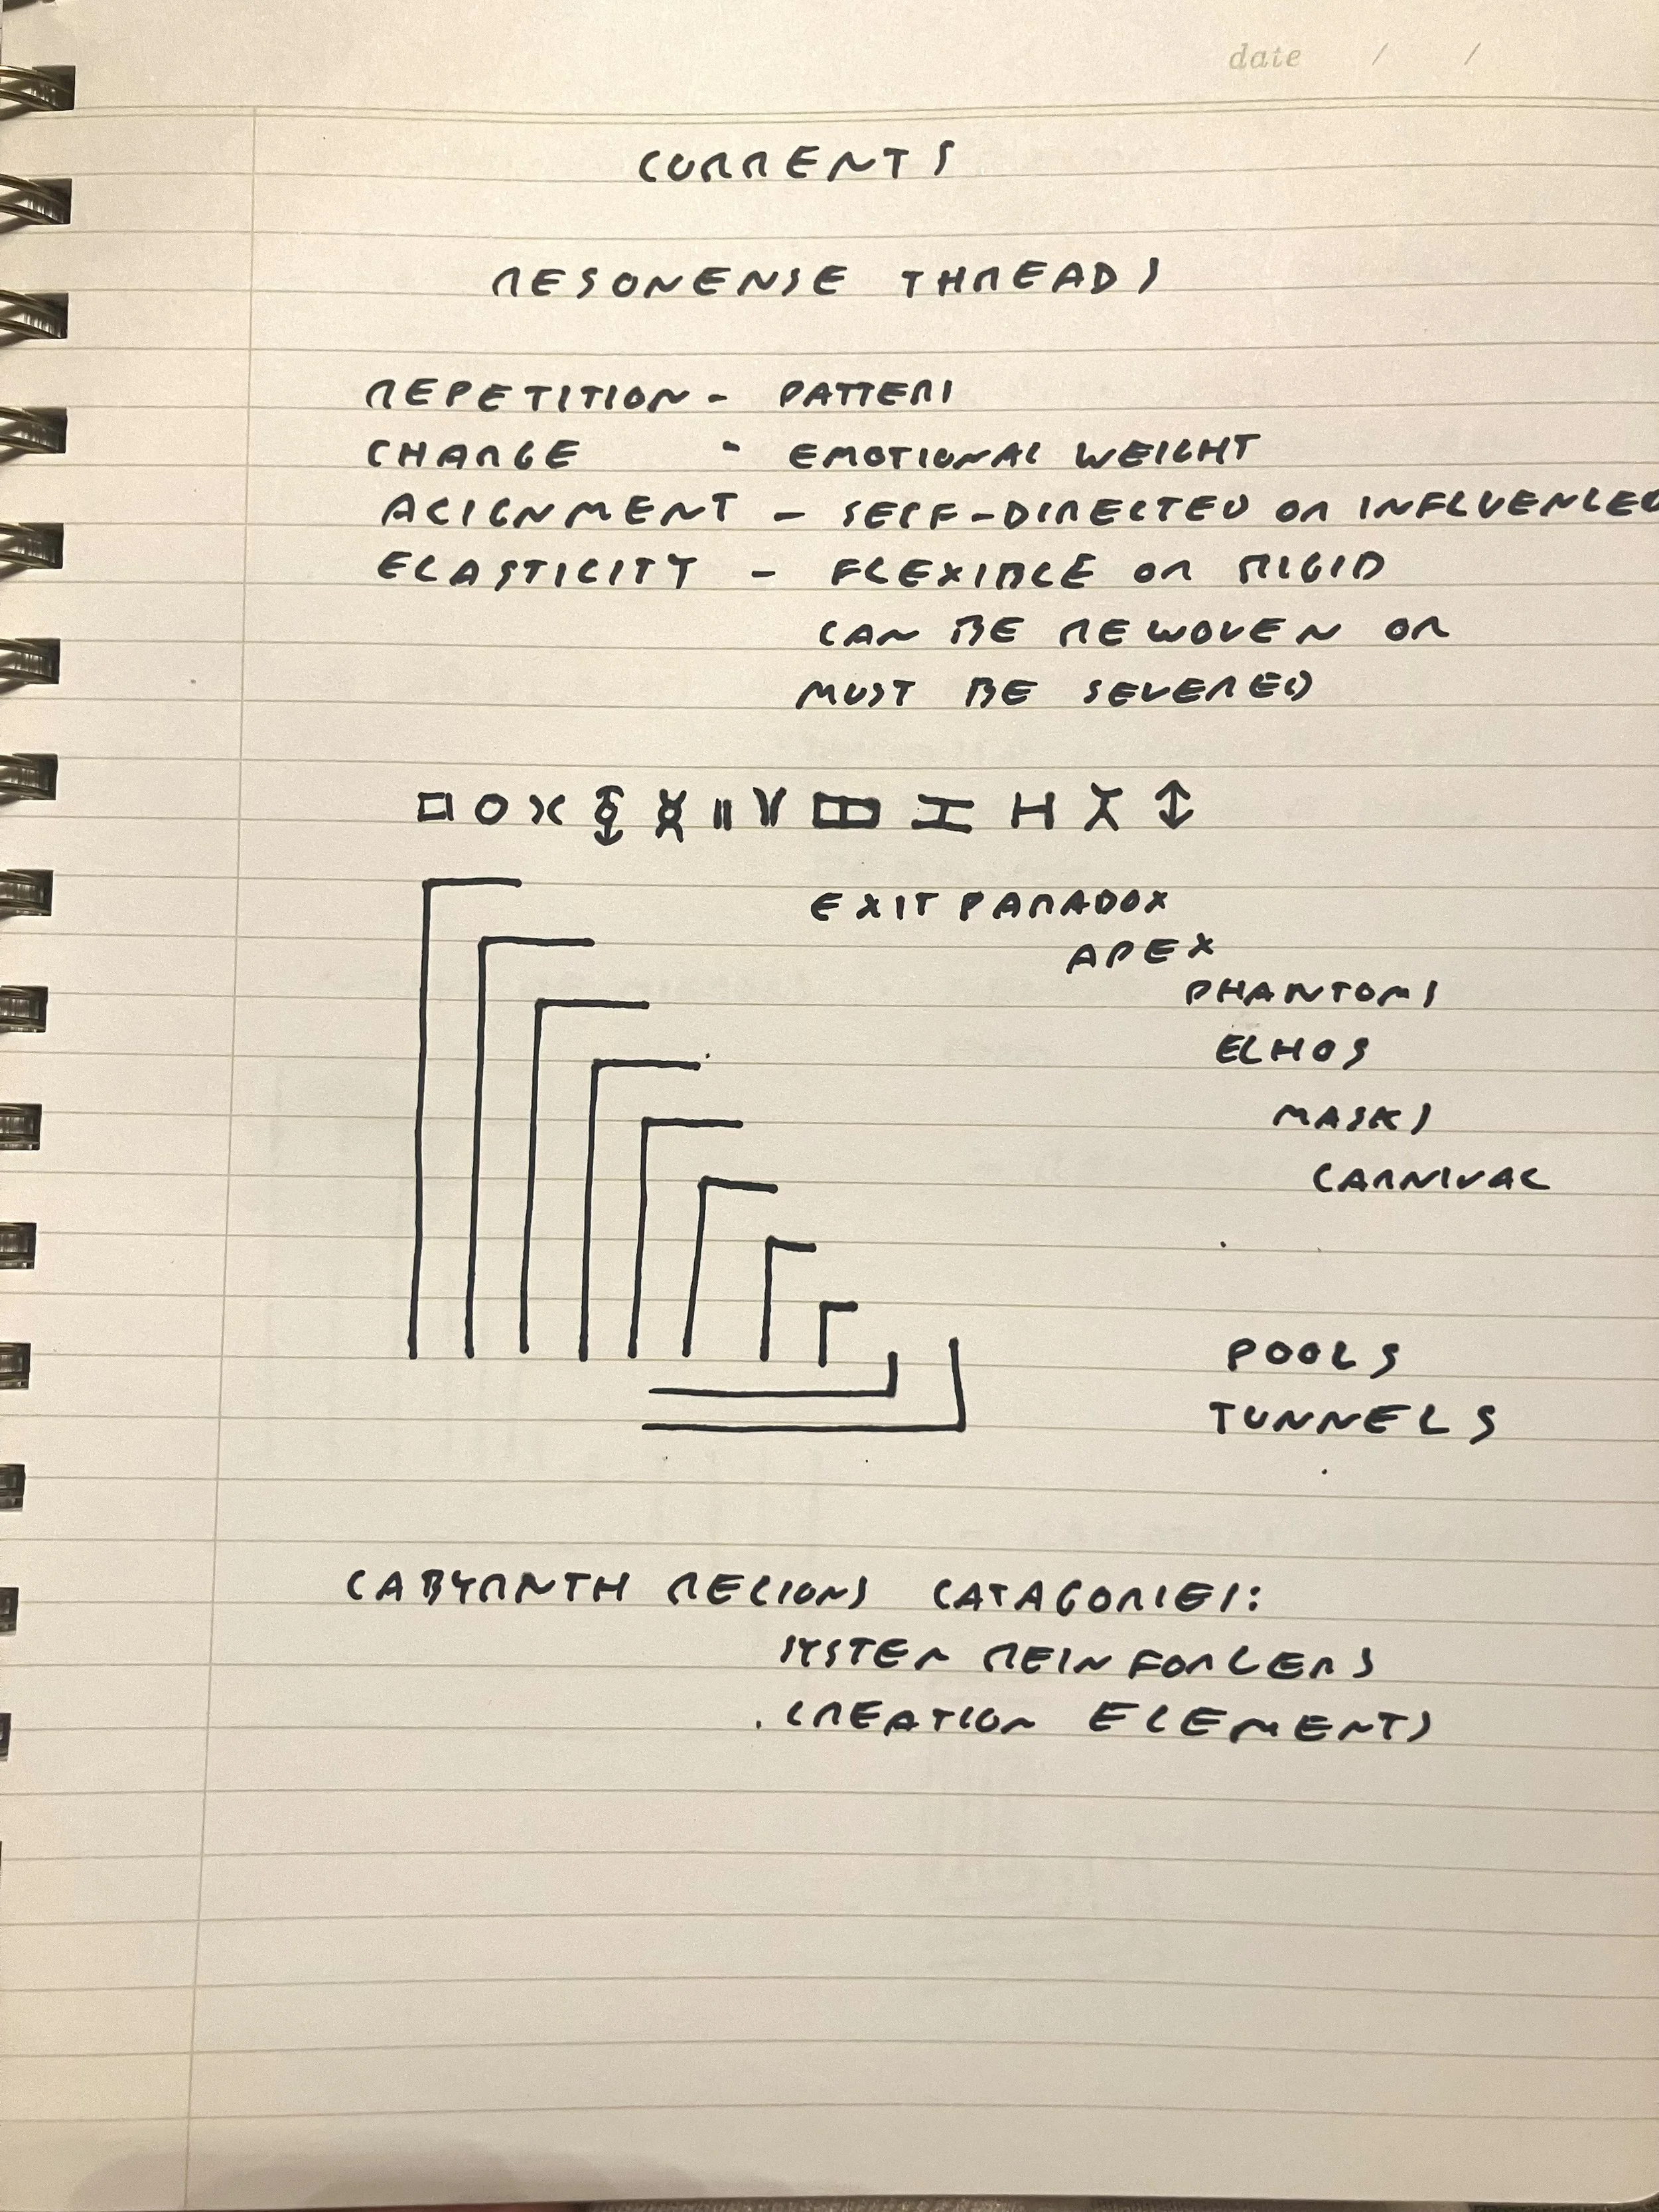 date / /
CURRENTS
RESONENSE THREADS
REPETITION - PATTERN
CHARGE - EMOTIONAL WEIGHT
ALIGNMENT - SELF-DIRECTED OR INFLUENCED
ELASTICITY - FLEXIBLE OR RIGID
CAN BE REWOVEN OR
MUST BE SEVERED
EXIT PARADOX
APEX
PHANTOMS
ECHOS
MASKS
CARNIVAL
POOLS
TUNNELS
LABYRNTH REGIONS CATAGORIES:
SYSTEM REINFORCERS
CREATION ELEMENTS